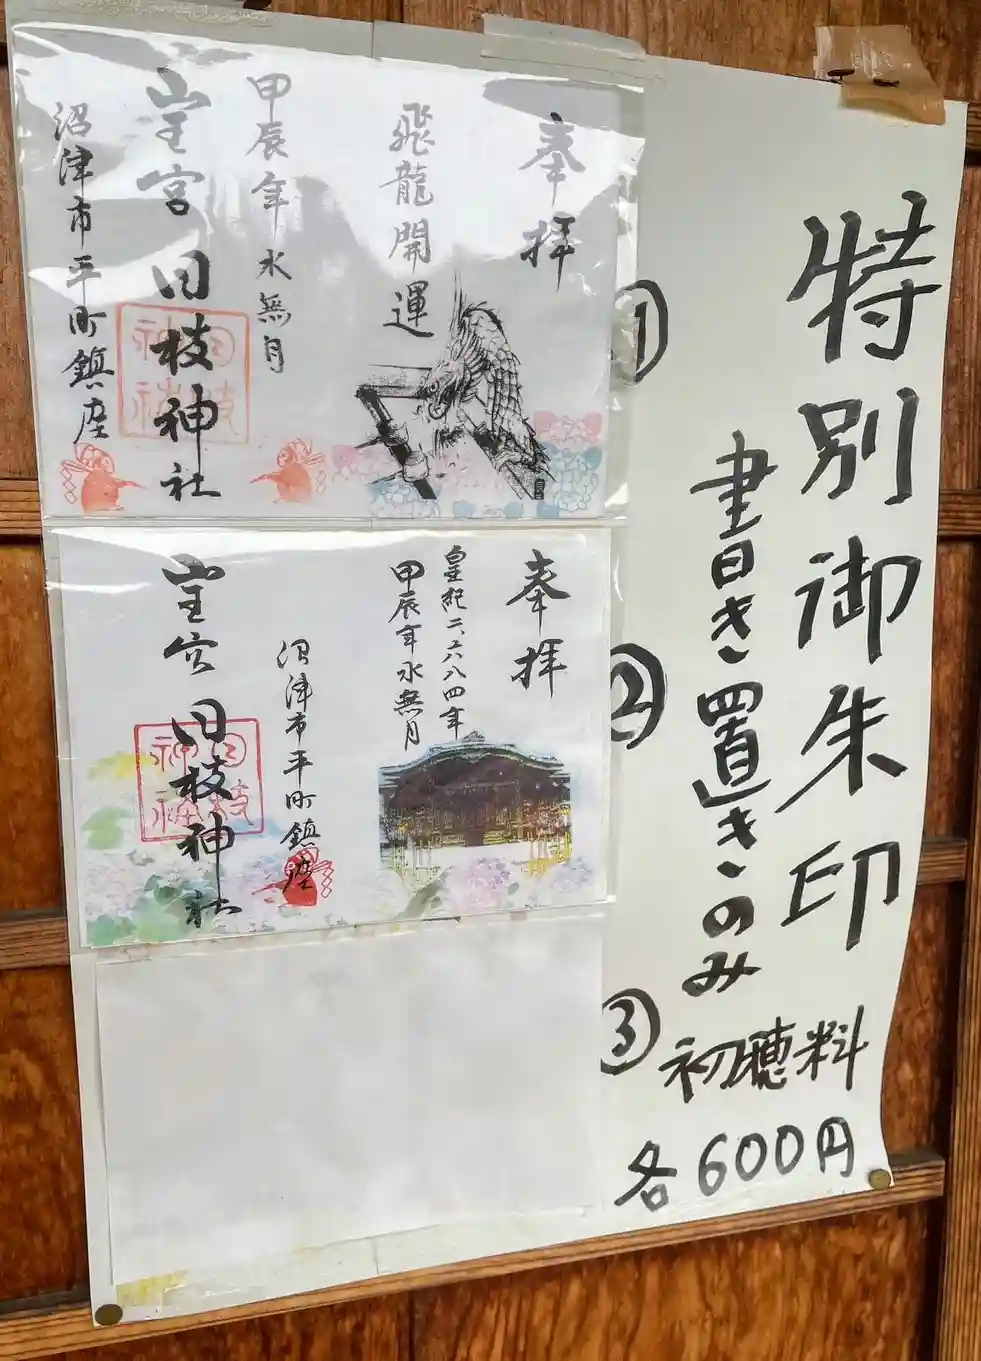 特別御朱印
書き置きのみ
初穂料
各600円
①
奉拝
飛龍開運
甲辰年水無月
山王宮 日枝神社
沼津市平町鎮座
②
奉拝
皇紀二六八四年
甲辰年水無月
沼津市平町鎮座
山王宮 日枝神社
③